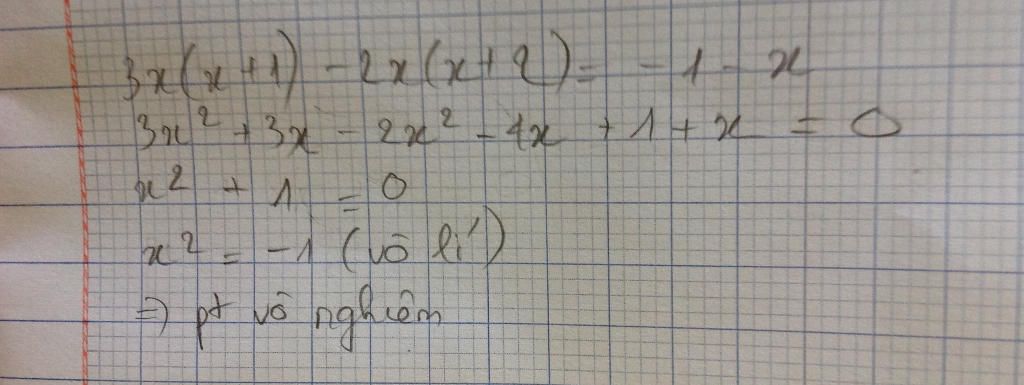 3x(x+1) - 2x(x+2) = -1 - x
3x² + 3x - 2x² - 4x + 1 + x = 0
x² + 1 = 0
x² = -1 (vô lí)
=> pt vô nghiệm